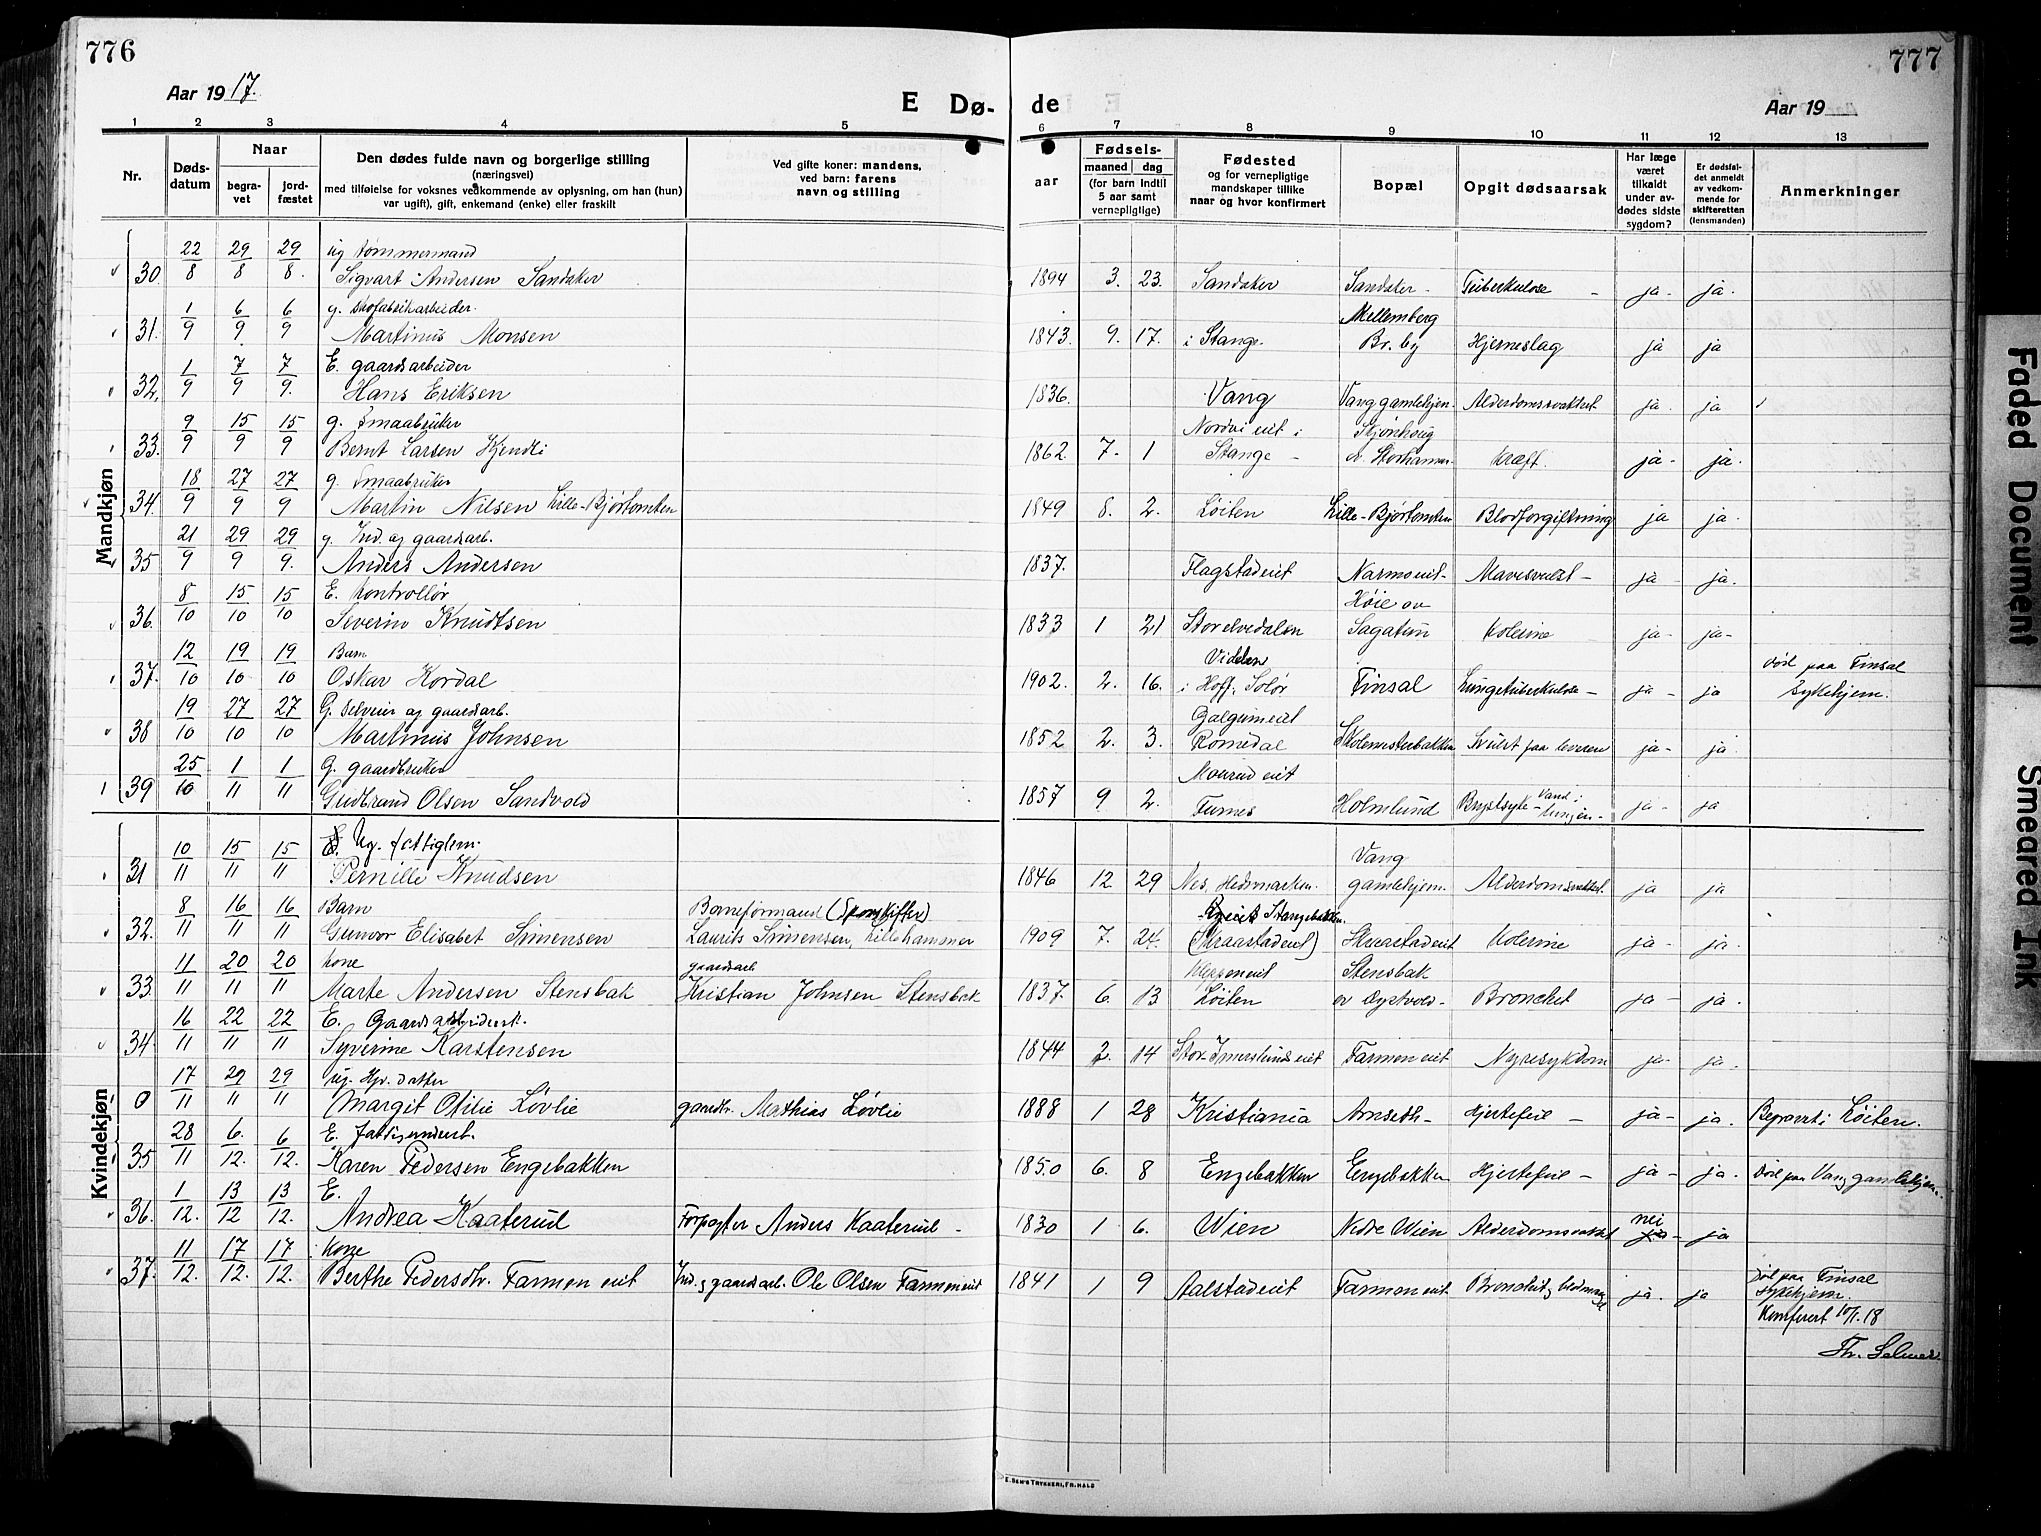 776
777
Aar 1917.
E Dø-
de
Aar 19
1 2 3 4 5 6 7 8 9 10 11 12 13
Nr.
Døds-
datum
Naar
begra-
vet
jord-
fæstet
Den dødes fulde navn og borgerlige stilling
(næringsvei)
med tilføielse for voksnes vedkommende av oplysning, om han (hun)
var ugift), gift, enkemand (enke) eller fraskilt
Ved gifte koner: mandens,
ved barn: farens
navn og stilling
Fødsels-
aar
maaned
dag
(for barn indtil
5 aar samt
vernepligtige)
Fødested
og for vernepligtige
mandskaper tillike
naar og hvor konfirmert
Bopæl
Opgit dødsaarsak
Har læge
været
tilkaldt
under av-
dødes sidste
sygdom?
Er dødsfal-
det anmeldt
av vedkom-
mende for
skifteretten
(lensmanden)
Anmerkninger
Mandkjøn
22 29 29 ug tømmermand
30. 8 8 8. Sigvart Andersen Sandaker 1894 3. 23. Sandaker Sandaker - Tuberkulose - ja - ja.
1 6 6 g. skofabrikarbeider. Mellemberg
31. 9 9. 9 Martinus Monsen 1843. 9. 17. i Stange. Br. by Hjerneslag ja ja
1 7 7 E. gaardsarbeider
32. 9 9 9. Hans Eriksen 1836. Vang Vang gamlehjem. Alderdomssvakhet ja. ja
9 15 15 g. Smaabruker Nordvi eiet i Skjønhoug
33. 9 9 9 Bernt Larsen Kjendli 1862. 7. 1 Stange - v. Storhamar - Kræft. ja - ja.
18 27 27 g. Smaabruker
34. 9 9 9 Martin Nilsen Lille-Bjørtomten 1849 8. 2. Løiten Lille-Bjørtomten Blodforgiftning ja ja.
21 29 29 g. Ind. og gaardsarb.
35 9 9 9. Anders Andersen 1837. Flagstadeiet Narmoeiet - Mavesvulst - ja - ja.
8 15 15 E. Kontrollør Høie ov
36. 10 10 10 Severin Knudtsen 1833 1 21 Storelvedalen Sagatun Kolerine ja - ja -
12 19 19 Barn Viddlen død paa Finsal
37. 10 10 10 Oskar Kordal 1902. 2. 16. i Hoff. Solør Finsal Lungetuberkulose - ja - ja Sykehjem.
19 27 27 G. selveier og gaardsarb. Galgumeiet
38 10 10 10 Martinus Johnsen 1852 2. 3. Romedal Skolemesterbakken Svulst paa leveren ja - ja.
25 1 1 G. gaardbruker Mourud eiet
39 10 11 11 Gudbrand Olsen Sandvold 1857 9 2. Furnes Holmlund Brystsyke - Vand i lungen - ja - ja
Kvindekjøn
10 15 15 Ug. fattiglem. Vang
31 11 11 11 Pernille Knudsen 1846 12 29 Nes, Hedemarken. gamlehjem. Alderdomsvakhet. ja ja
8 16 16 Barn Banneformand Stangebakken.
32. 11 11 11 Gunvor Elisabet Simensen Laurits Simensen, Lillehammer 1909 7. 24. (Skraastadeiet) Skraastadeiet Kolerine ja - ja.
11 20 20 Kone gaardsarb Kleppeneiet Stensbak
33. 11 11 11 Marte Andersen Stensbak Kristian Johnsen Stensbak 1837. 6. 13 Løiten Bronchit ja - ja.
16 22 22 E.
34. 11 11 11 Syverine Karstensen 1844 2. 14 Stor-Imerslundseiet Farmen eiet Nyresykdom ja - ja.
17 29 29 ug. Hpr. datter
0 11 11 11 Margit Otilie Løvlie gaardbr. Mathias Løvlie 1888 1 28 Kristiania Arnseth - Hjertefeil - ja - ja. Begravet i Løiten.
28 6. 6 E. fattigunderst.
35 11 12. 12. Karen Pedersen Engebakken 1850 6. 8 Engebakken Engebakken Hjertefeil - ja - ja. Død paa Vang gamlehjem.
1 13 13 E. nei
36. 12. 12 12. Andrea Kaaterud Forpagter Anders Kaaterud - 1830 1 6. Wien Nedre Wien Alderdomsvakhet ja - ja
11 17 17 Kone død paa Finsal
37. 12. 12. 12. Berthe Pedersdtr. Farmen eiet Ind. og gaardsarb. Ole Olsen Farmeneiet 1841 1 9 Aalstadeiet Farmoneiet Bronchit ja. ja Sykehjem.
Konferert 10/1.18
Th. Selmer.
E. SEM'S TRYKKERI, FR.HALD
Faded Document
Smeared Ink